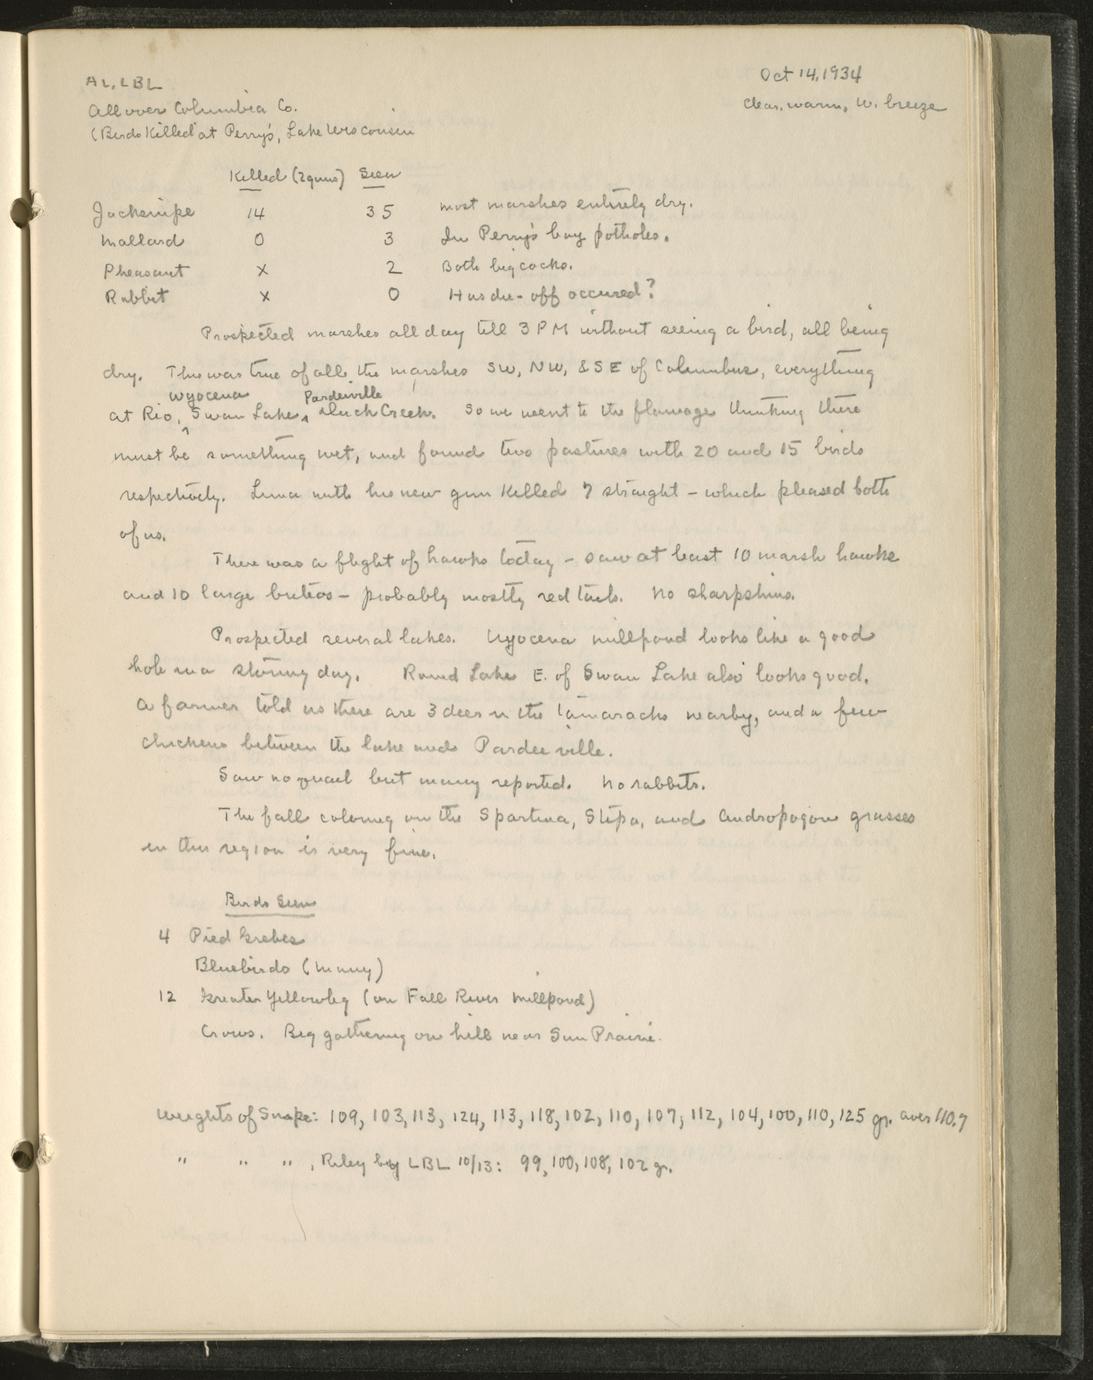 AL, LBL
Oct 14, 1934
All over Columbia Co.
clear, warm, W. breeze
(Birds killed at Perry's, Lake Wisconsin
Killed (2 guns) Seen
Jacksnipe 14 35 most marshes entirely dry.
Mallard 0 3 In Perry's bay potholes.
Pheasant x 2 Both big cocks.
Rabbit x 0 Has die-off occured?
Prospected marshes all day till 3 PM without seeing a bird, all being
dry. This was true of all the marshes SW, NW, & SE of Columbus, everything
Wyocena Pardeeville
at Rio, ^ Swan Lake, ^ Duck Creek. So we went to the flowage thinking there
must be something wet, and found two pastures with 20 and 15 birds
respectively. Luna with his new gun killed 7 straight - which pleased both
of us.
There was a flight of hawks today - saw at least 10 marsh hawks
and 10 large buteos - probably mostly redtails. No sharpshins.
Prospected several lakes. Wyocena millpond looks like a good
hole on a stormy day. Round Lake E. of Swan Lake also looks good.
A farmer told us there are 3 deer in the tamaracks nearby, and a few
chickens between the lake and Pardeeville.
Saw no quail but many reported. No rabbits.
The fall coloring on the Spartina, Stipa, and Andropogon grasses
in this region is very fine.
Birds Seen
4 Pied Grebes
Bluebirds (many)
12 Greater Yellowleg (on Fall River millpond)
Crows. Big gathering on hill near Sun Prairie.
Weights of Snipe: 109, 103, 113, 124, 113, 118, 102, 110, 107, 112, 104, 100, 110, 125 gr. aver 110.7
" " " , Riley by LBL 10/13: 99, 100, 108, 102 gr.